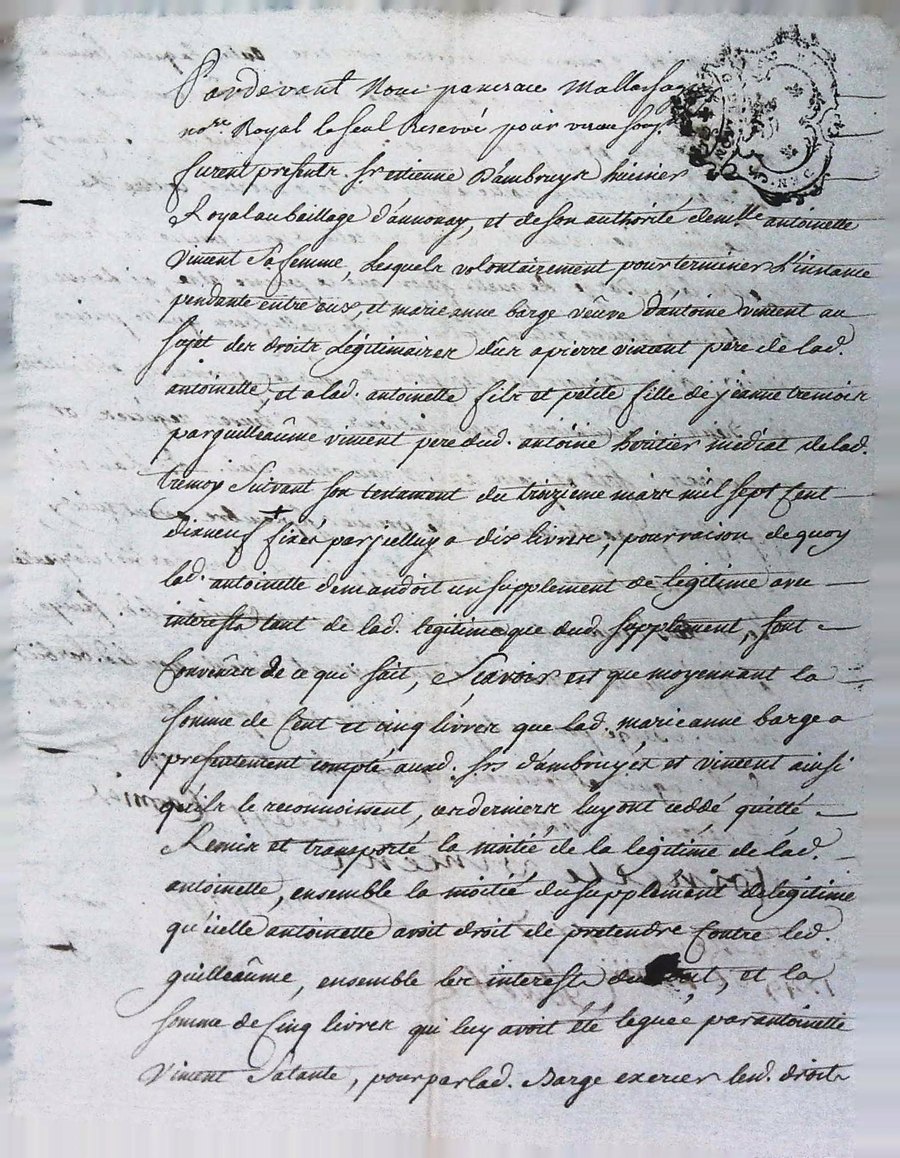 Pardevant Nous pancrace Mallassa
no.re Royal le seul reservé pour
furent presents Sr etienne D'ambruys huissier
Royal au baillage d'annonay, et de son authorité demlle antoinette
Vincent Sa femme, Lesquels volontairement pour terminer L'instance
pendante entre eux, et marie anne barge veuve d'antoine vincent au
sujet des droits Légitimaires dus a pierre vincent pere de lad.
antoinette, et a lad. antoinette fils et petite fille de jeanne tremoir
par guilleaûme vincent pere dud. antoine heritier mediat de lad.
tremoy Suivant son testament du treizieme mars mil sept Cent
dixneuf fixés par jcelluy a dix livres, pour raison de quoy
lad. antoinette demandoit un supplement de legitime avec
interests tant de lad. legitime que dud. supplement, sont
Convenus de ce qui suit, Scavoir est que moyennant la
somme de Cent et cinq livres que lad. marie anne barge a
presentement compté auxd. Srs d'ambruyes et vincent ainsi
qu'ils le reconnoissent, ces derniers luy ont ceddé quitté
Remis et transporté la moitié de la legitime de lad.
antoinette, ensemble la moitié du supplement de legitime
qu'icelle antoinette avoit droit de pretendre Contre led.
guilleaûme, ensemble les interests du tout, et la
somme de Cinq livres qui luy avoit été leguée par antoinette
Vincent Sa tante, pour par lad. Barge exercer lesd. droits